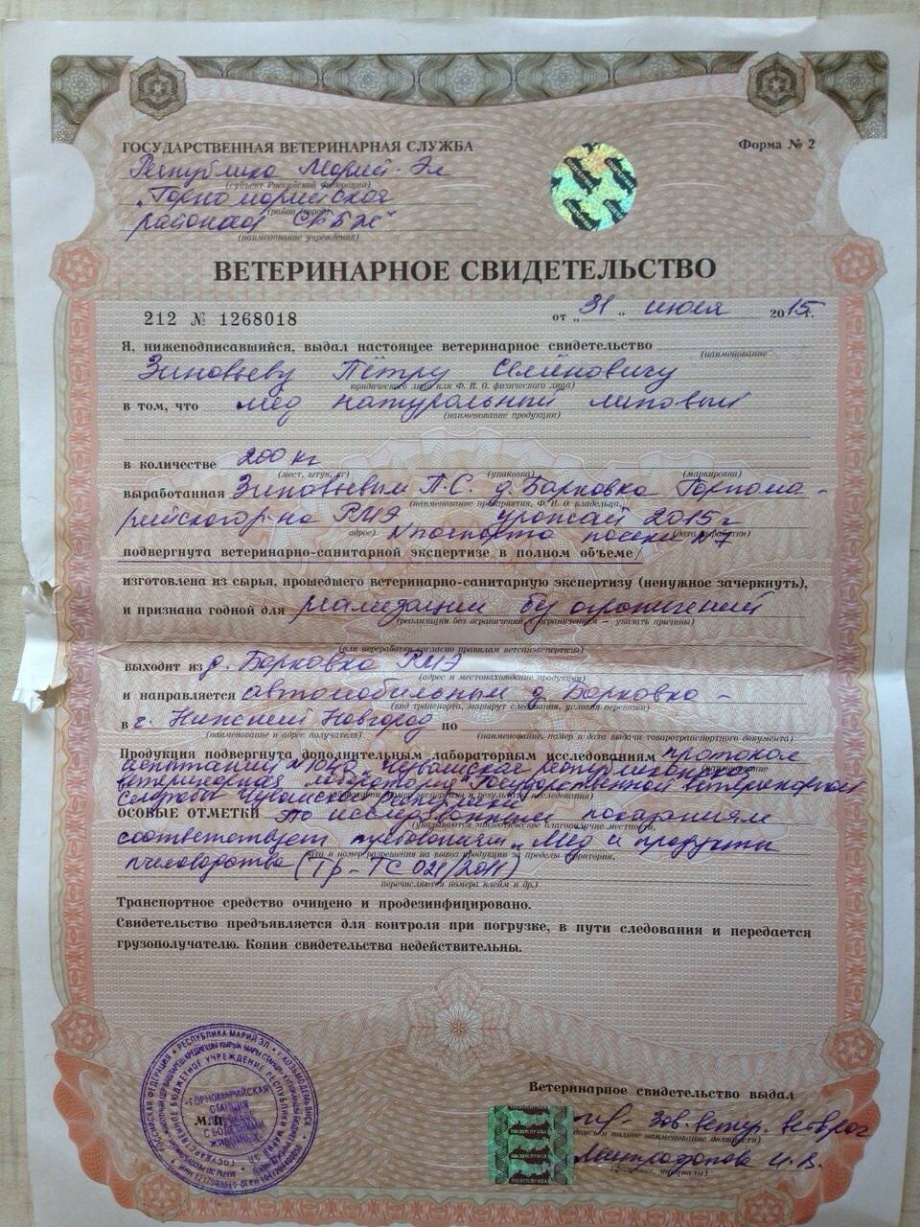 ГОСУДАРСТВЕННАЯ ВЕТЕРИНАРНАЯ СЛУЖБА
Форма № 2
Республика Марий-Эл
(субъект Российской Федерации)
"Горномарийская
(район, город)
районная СББЖ"
(наименование учреждения)
ВЕТЕРИНАРНОЕ СВИДЕТЕЛЬСТВО
212 № 1268018
от „31" июля 2015г.
Я, нижеподписавшийся, выдал настоящее ветеринарное свидетельство
(наименование
Зиновьеву Пётру Семёновичу
юридического лица или Ф. И. О. физического лица)
в том, что мёд натуральный липовый
(наименование продукции)
в количестве 200 кг
(мест, штук, кг) (упаковка) (маркировка)
выработанная Зиновьевым П.С. д. Барковка Горнома-
(наименование предприятия, Ф. И. О. владельца,
рийского р-на РМЭ урожай 2015г
адрес) (дата выработки)
N паспорта пасеки N 7
подвергнута ветеринарно-санитарной экспертизе в полном объеме/
изготовлена из сырья, прошедшего ветеринарно-санитарную экспертизу (ненужное зачеркнуть),
и признана годной для реализации без ограничений
(реализации без ограничений, с ограничением – указать причины)
(или переработки согласно правилам ветсанэкспертизы)
выходит из д. Барковка РМЭ
(адрес и местонахождение продукции)
и направляется автомобильным д. Барковка -
(вид транспорта, маршрут следования, условия перевозки)
в г. Нижний Новгород по
(наименование и адрес получателя) (наименование, номер и дата выдачи товаротранспортного документа)
Продукция подвергнута дополнительным лабораторным исследованиям протокол
испытаний Чувашская республиканская
ветеринарная лаборатория Государственной ветеринарной
службы Чувашской Республики
ОСОБЫЕ ОТМЕТКИ По исследованным показаниям
(указываются эпизоотическое благополучие местности,
соответствует требованиям „Мёд и продукты
дата и номер разрешения на вывоз продукции за пределы территории,
пчеловодства (Тр-ТС 021/2011)
перечисляются номера клейм и др.)
Транспортное средство очищено и продезинфицировано.
Свидетельство предъявляется для контроля при погрузке, в пути следования и передается
грузополучателю. Копии свидетельства недействительны.
Ветеринарное свидетельство выдал
зав. ветврач
Митрофанова И.В.
М.П.
РЕСПУБЛИКА МАРИЙ ЭЛ
ГОРНОМАРИЙСКАЯ
СТАНЦИЯ
ПО БОРЬБЕ
С БОЛЕЗНЯМИ
ЖИВОТНЫХ